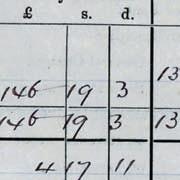 £ s. d.
146 19 3 13
146 19 3 13
4 17 11